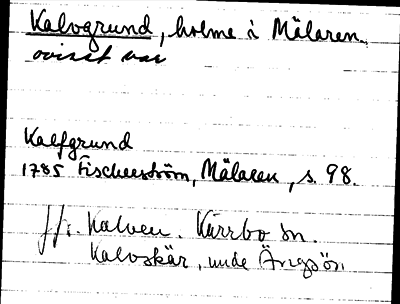 Kalvgrund, holme i Mälaren,
ovisst var
Kalfgrund
1785 Fischerström, Mälaren, s. 98.
Jfr. Kalven. Kärrbo sn.
Kalvskär, Ängsön